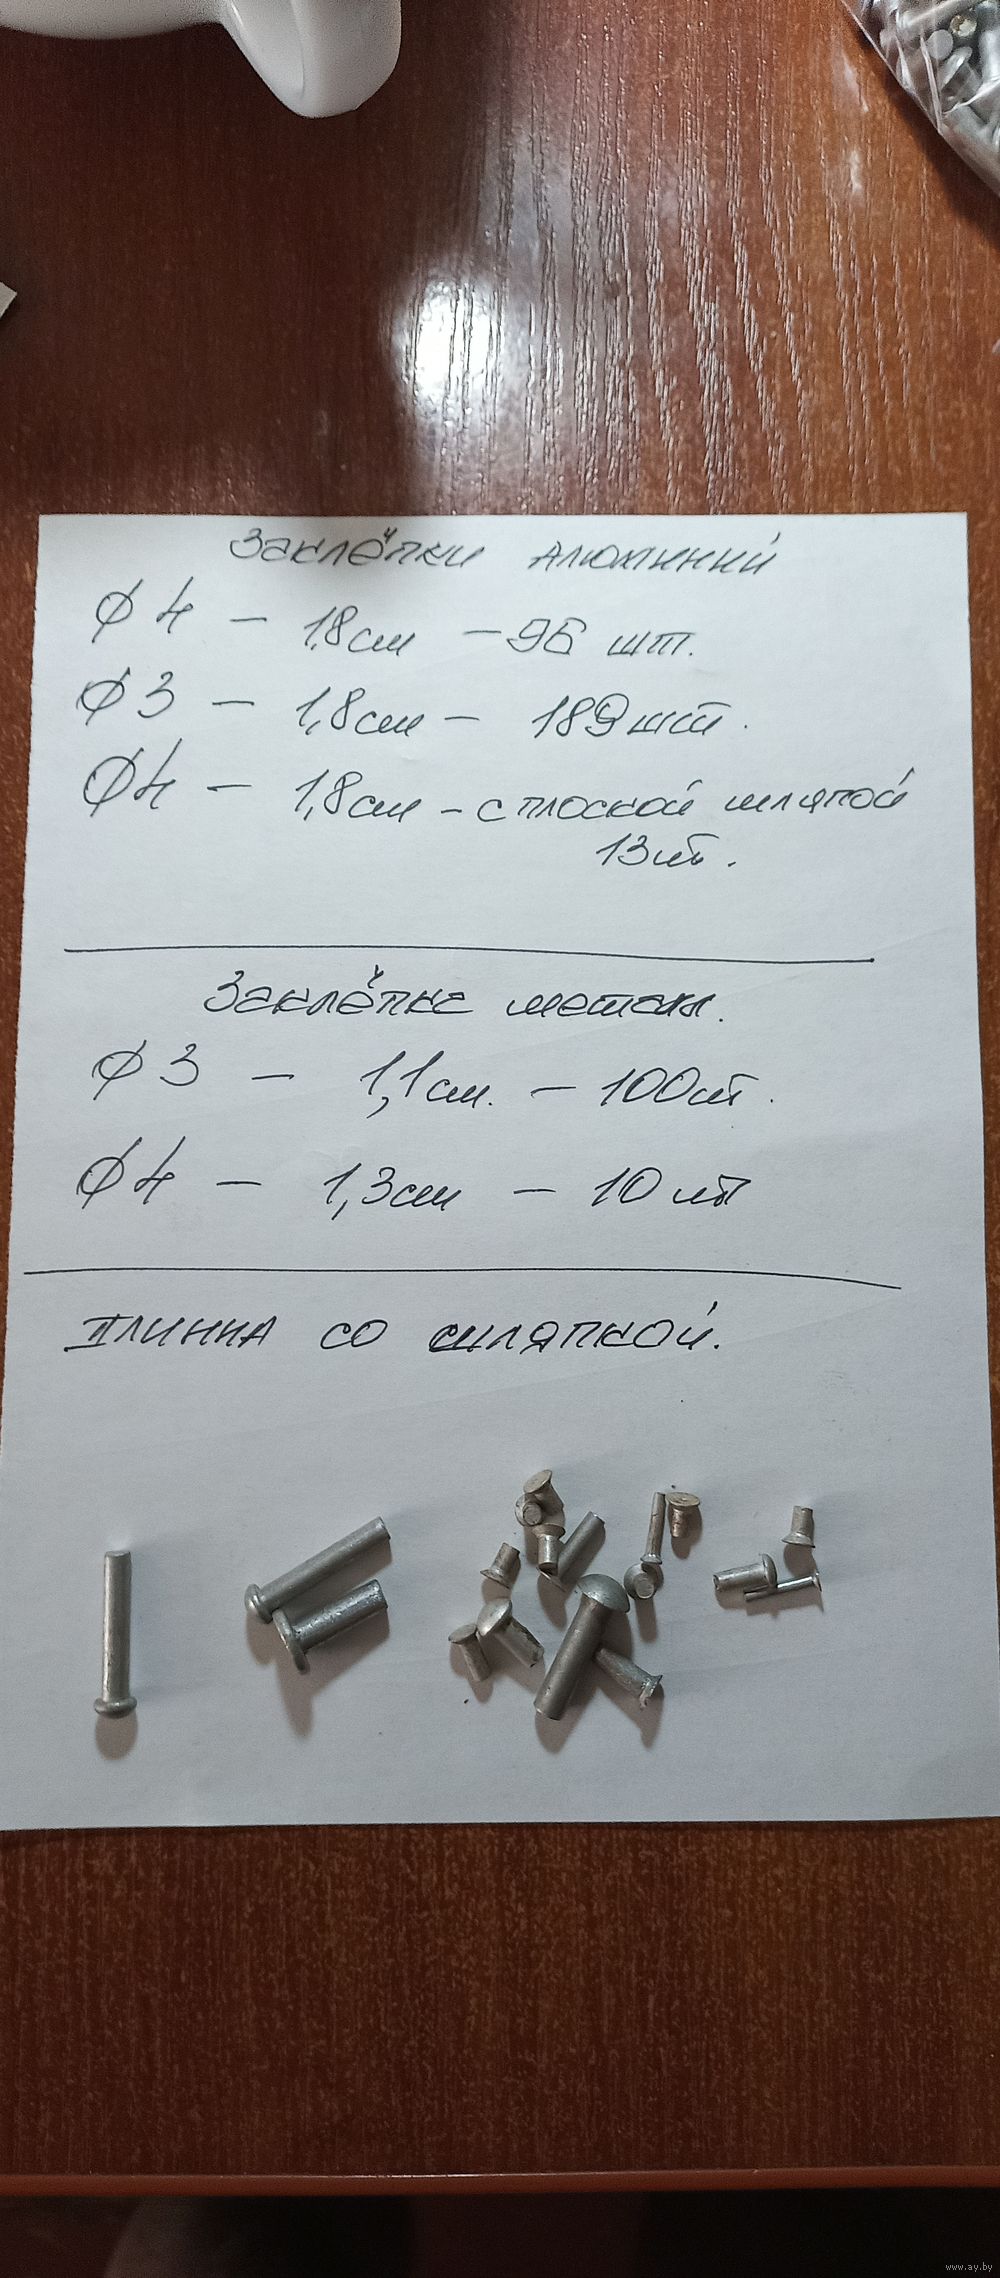 Заклёпки алюминий
Ø 4 — 1,8см — 96 шт.
Ø 3 — 1,8см — 189 шт.
Ø 4 — 1,8см — с плоской шляпой
13 шт.
Заклёпка метал.
Ø 3 — 1,1см. — 100 шт.
Ø 4 — 1,3см — 10 шт
Длинна со шляпкой.
www.ay.by